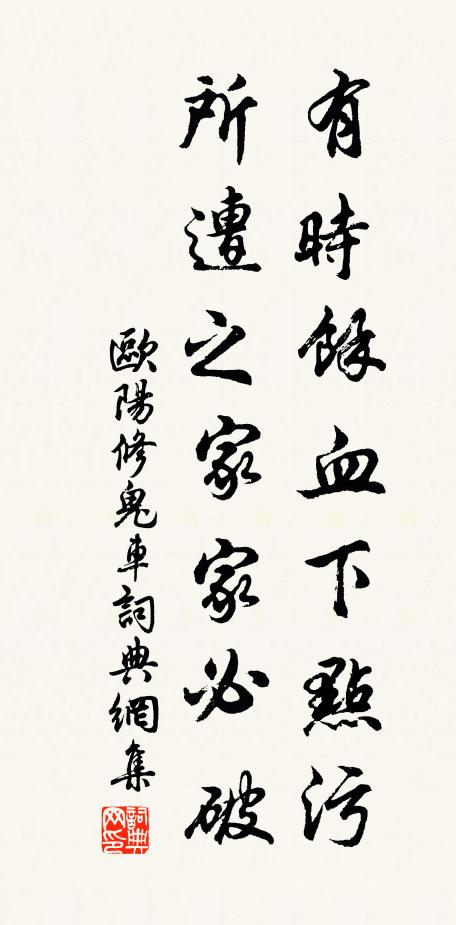 有時餘血下點污
所遭之家家必破
歐陽修鬼車詞典網集
詞典
网印